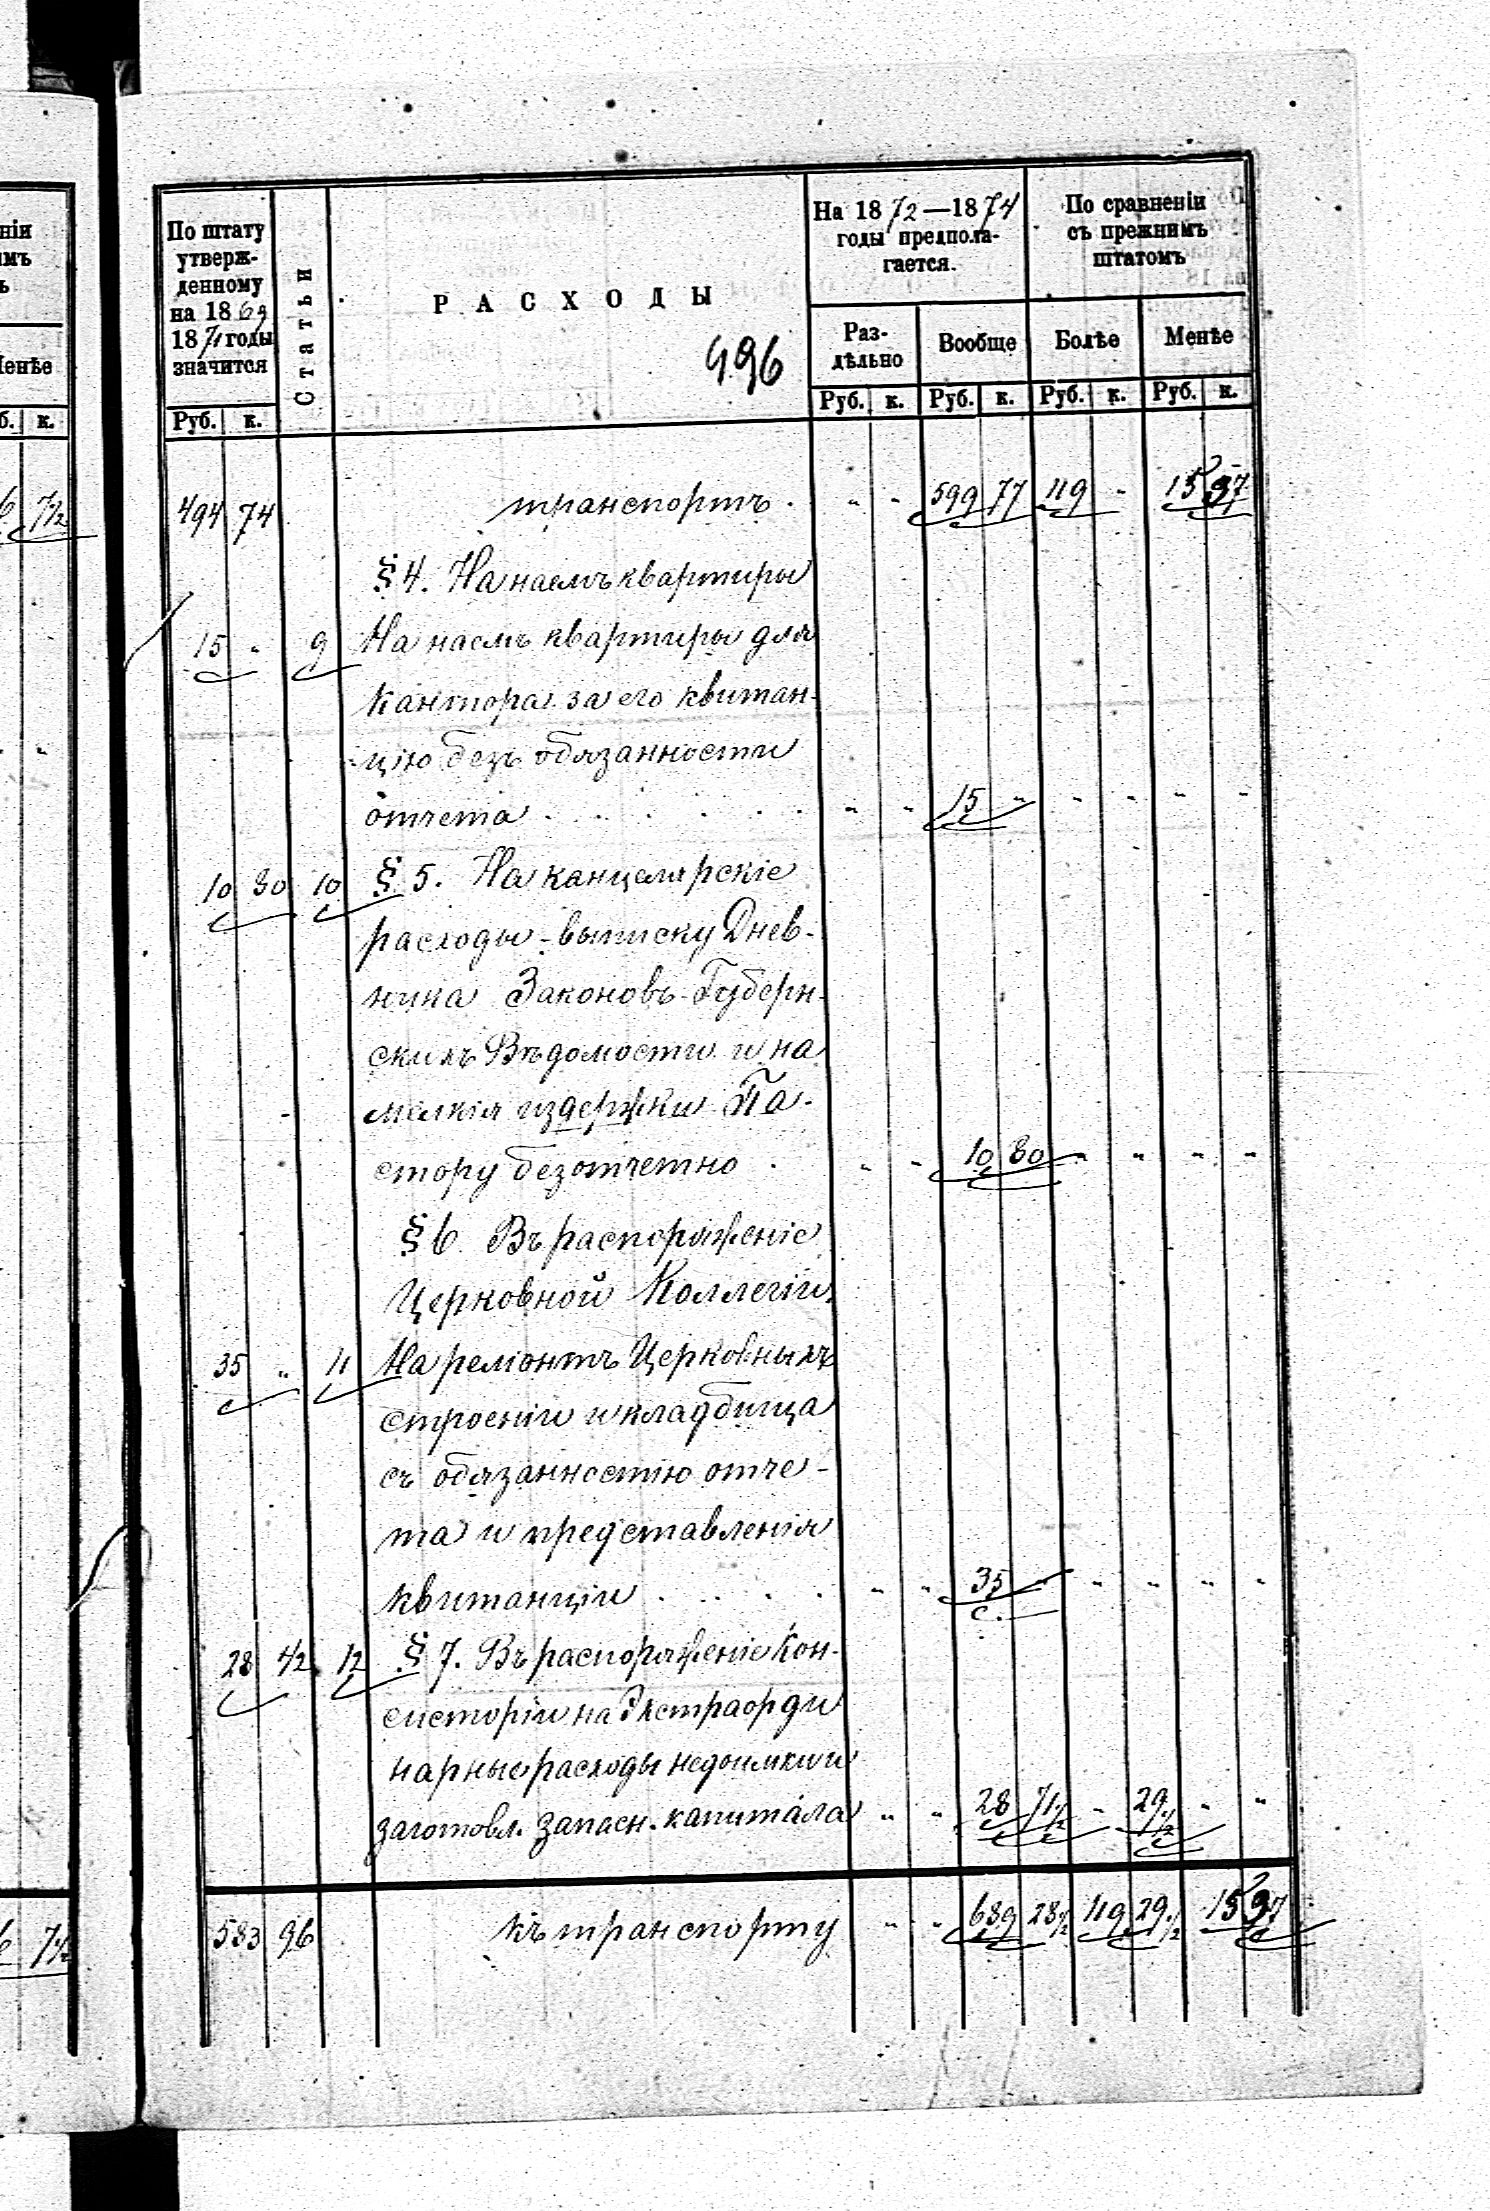 По штату утверж- денному на 1869 1871 годы значится
Статьи
РАСХОДЫ
496
На 1872—1874 годы предпола- гается.
По сравненіи съ прежнимъ штатомъ
Раз- дѣльно
Вообще
Болѣе
Менѣе
Руб. к.
Руб. к. Руб. к. Руб. к. Руб. к.
494 74 транспортъ . " " 599 77 119 " 15 97
§ 4. На наемъ квартиры
15 " 9 На наемъ квартиры для
кантора за его квитан-
цію безъ обязанности
отчета . . . . . " " 15 " " " " "
10 80 10 § 5. На канцелярскіе
расходы - выписку Днев-
ника Законовъ - Губерн-
скихъ Вѣдомости и на
мелкія издержки Па-
стору безотчетно . " " 10 80 " " " "
§ 6 Въ распоряженіе
Церковной Коллегіи.
35 " 11 На ремонтъ Церковныхъ
строеніи и кладбища
съ обязанностію отче-
та и представленія
квитанціи . . . . " " 35 " " " " "
28 42 12 § 7. Въ распоряженіе Кон-
систоріи на Экстраорди
нарные расходы недоимки и
заготовл. запасн. капитала " " 28 71 1/2 " 29 1/2 " "
583 96 къ транспорту " " 689 28 1/2 119 29 1/2 15 97
ніи
имъ
Менѣе
б. к.
6 7 1/2
6 7 1/2